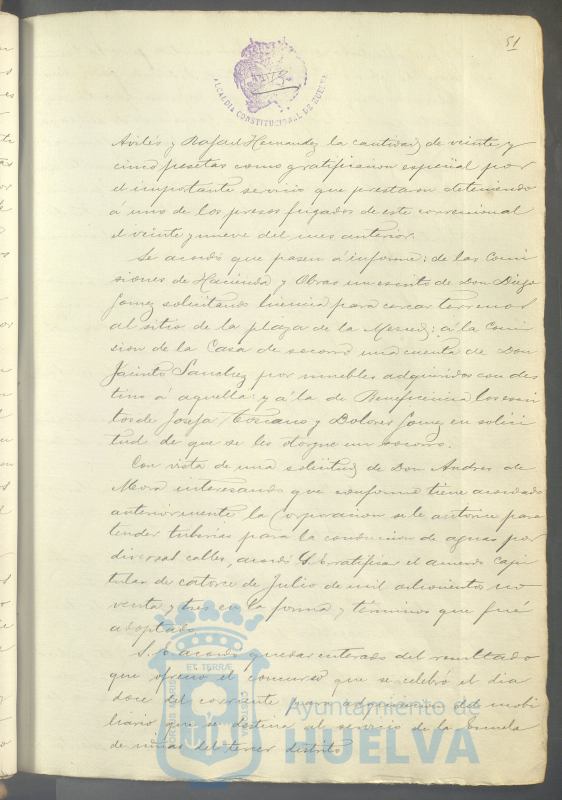 51
ALCALDIA CONSTITUCIONAL DE HUELVA
Avilés y Rafael Hernandez la cantidad de veinte y
cinco pesetas como gratificacion especial por
el importante servicio que prestaron deteniendo
á uno de los presos fugados de este correccional
el veinte y nueve del mes anterior.
Se acordó que pasen á informe: de las Comi
siones de Hacienda y Obras un escrito de Don Diego
Gomez solicitando licencia para cercar terrenos
al sitio de la plaza de la Merced: á la Comi
sion de la Casa de socorro una cuenta de Don
Jacinto Sanchez por muebles adquiridos con des
tino á aquella: y á la de Beneficencia los escri
tos de Josefa Toscano y Dolores Gomez en solici
tud de que se les otorgue un socorro.
Con vista de una solicitud de Don Andres de
Mora interesando que conforme tiene acordado
anteriormente la Corporacion se le autorice para
tender tuberias para la conduccion de aguas por
diversas calles, acordó S. E. ratificar el acuerdo capi
tular de catorce de Julio de mil ochocientos no
venta y tres en la forma y términos que fué
adoptado.
S. E. acordó quedar enterado del resultado
que ofreció el concurso que se celebró el dia
doce del corriente para adquisicion del mobi
liario que se destina al servicio de la Escuela
de niñas del tercer distrito
Ayuntamiento de
HUELVA